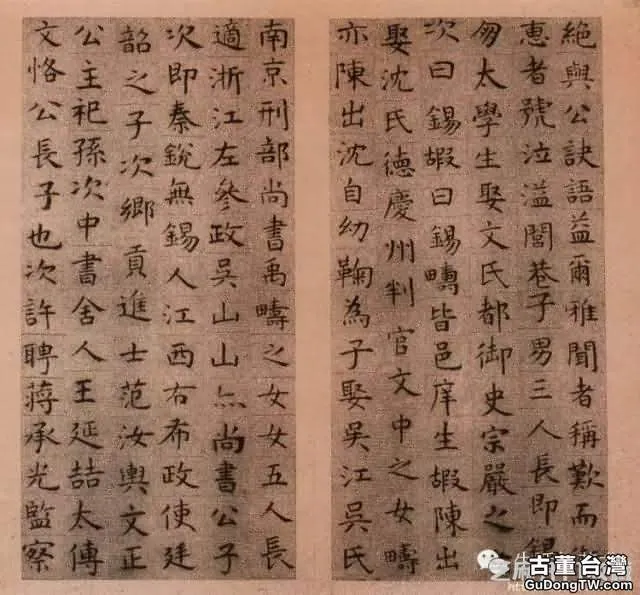 絕與公訣語益爾雅聞者稱歎而
惠者號泣溢閭巷子男三人長即錫
太學生娶文氏都御史宗嚴之
次曰錫嘏曰錫疇皆邑庠生嘏陳出
娶沈氏德慶州判官文中之女疇
亦陳出沈自幼鞠為子娶吳江吳氏
南京刑部尚書禹疇之女女五人長
適浙江左參政吳山山亦尚書公子
次即秦銳無錫人江西右布政使廷
韶之子次鄉貢進士范汝輿文正
公主祀孫次中書舍人王延喆太傅
文恪公長子也次許聘蔣承光監察
古董台灣
GuDongTW.com